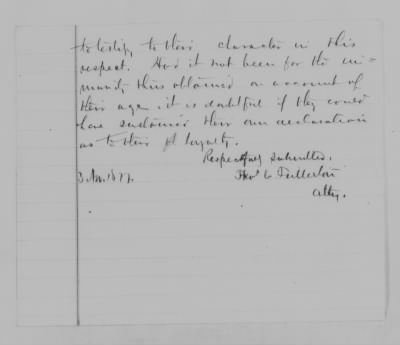 to testify to their character in this
respect. Had it not been for the im-
munity thus obtained on account of
their age it is doubtful if they could
have sustained their own declaration
as to their loyalty.
Respectfully submitted.
Thos C Fullerton
Atty.
3 Nov 1877.